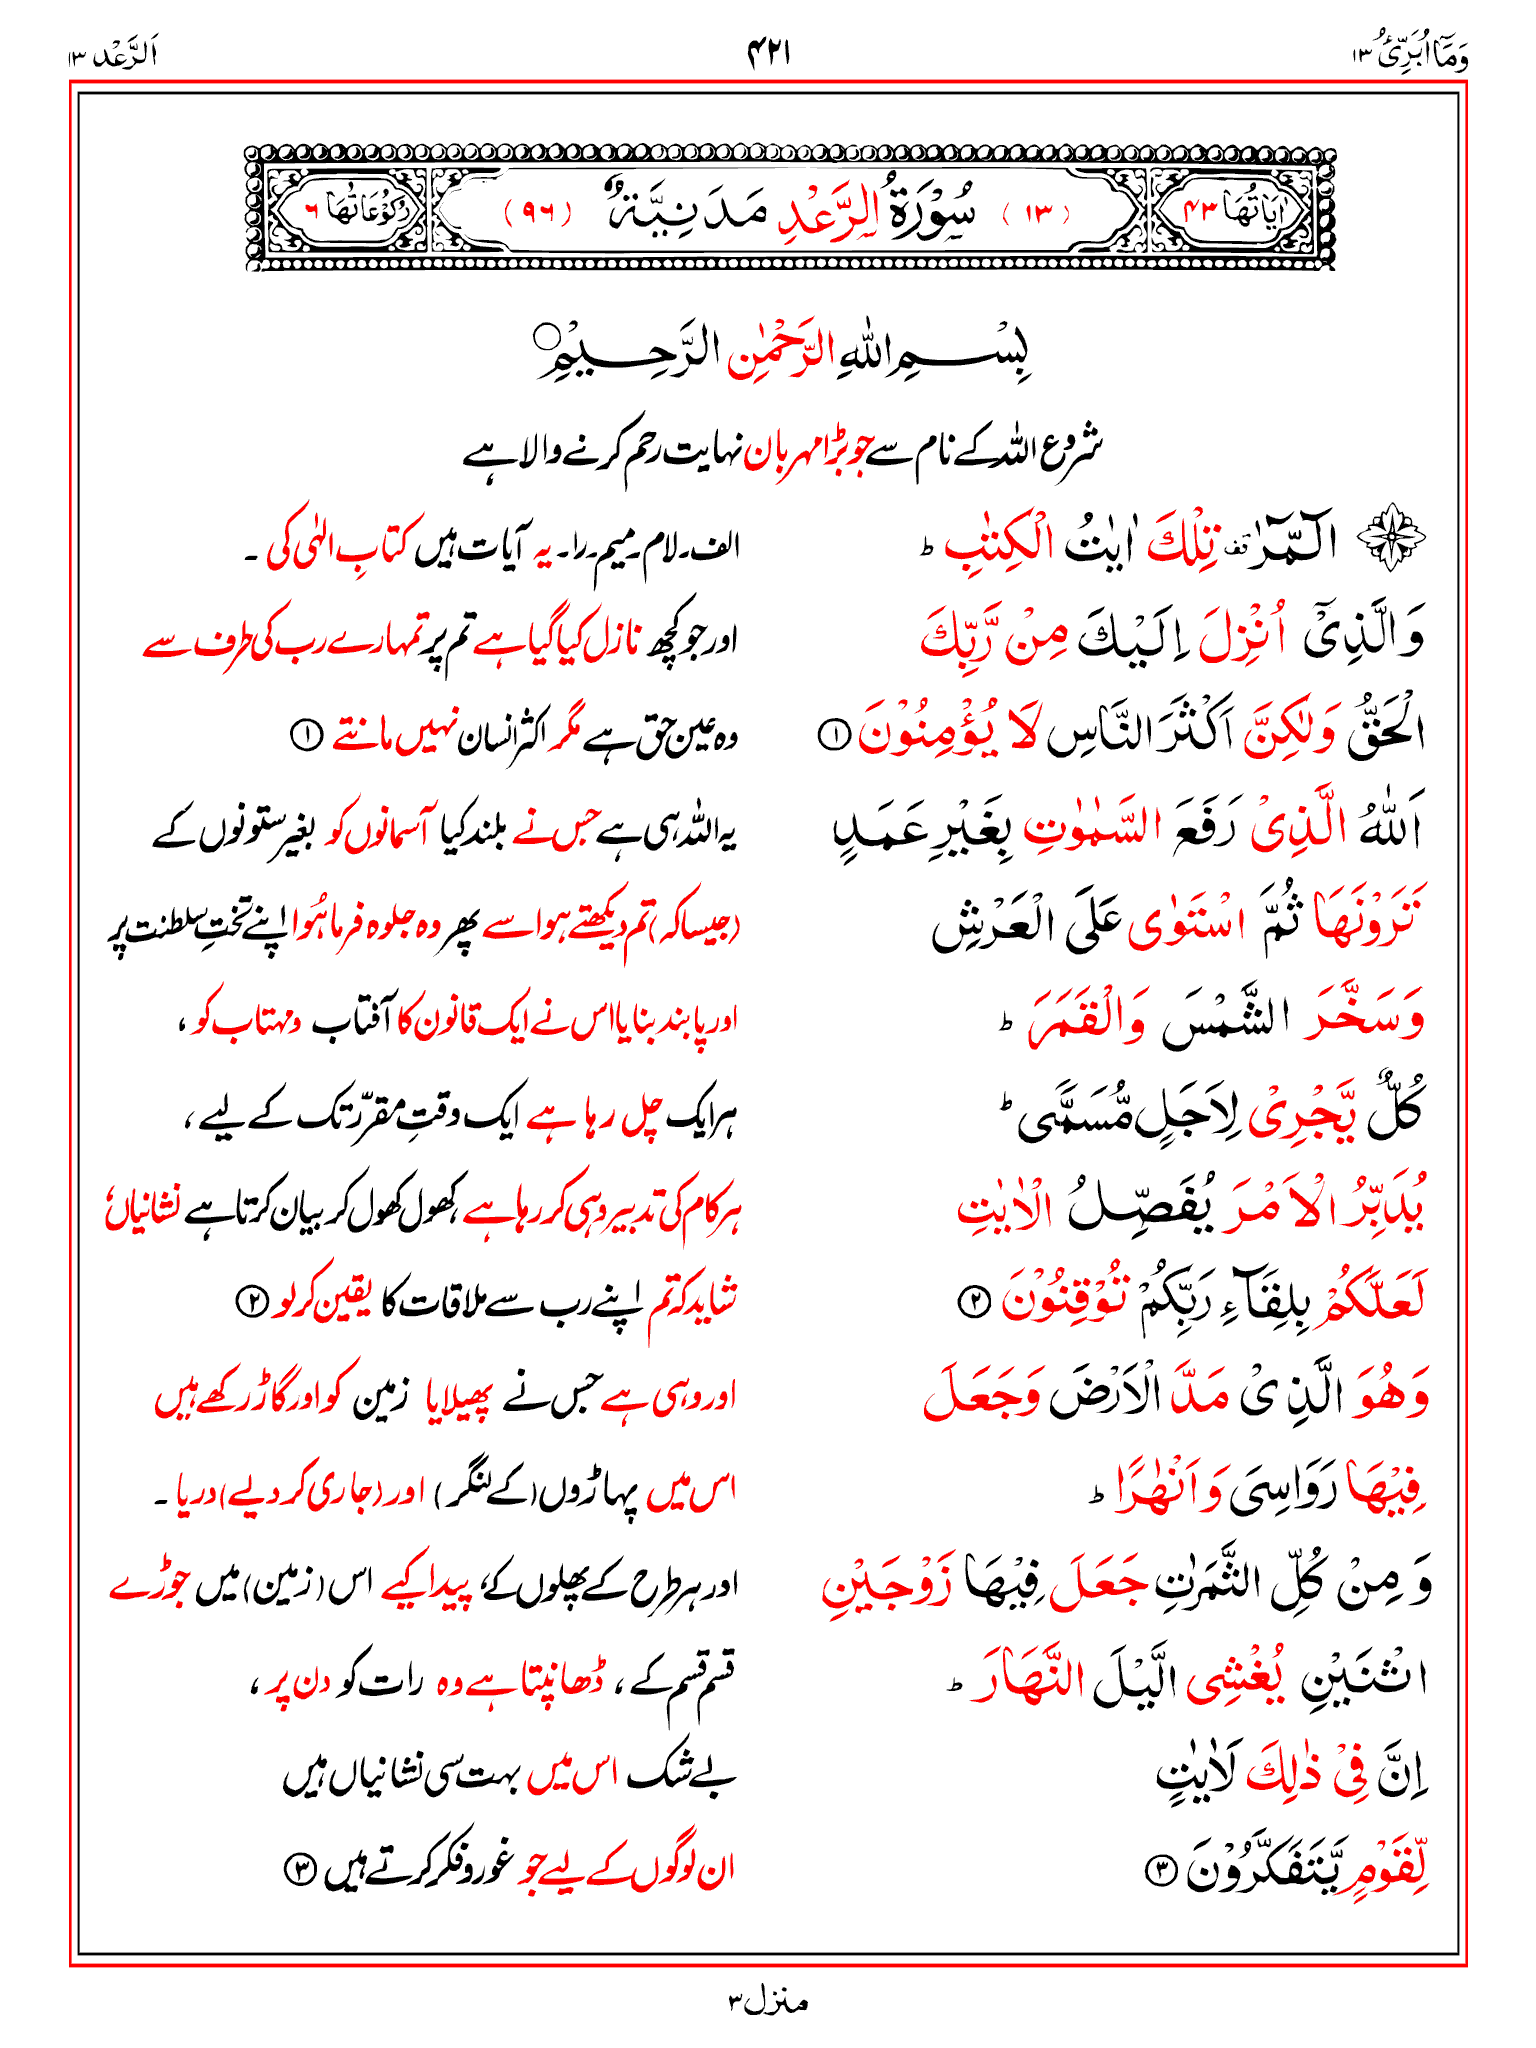 وَمَآ اُبَرِّئُ ١٣ ٤٢١ اَلرَّعْد ١٣
اٰیَاتُهَا ٤٣ (١٣) سُوْرَةُ الرَّعْدِ مَدَنِیَّةٌ (٩٦) رُكُوْعَاتُهَا ٦
بِسْمِ اللّٰهِ الرَّحْمٰنِ الرَّحِیْمِ ○
شروع اللہ کے نام سے جو بڑا مہربان نہایت رحم کرنے والا ہے
الٓمّٓرٰ قف تِلْكَ اٰیٰتُ الْكِتٰبِ ط الف۔ لام۔ میم۔ را۔ یہ آیات ہیں کتابِ الٰہی کی ۔
وَالَّذِیْۤ اُنْزِلَ اِلَیْكَ مِنْ رَّبِّكَ اور جو کچھ نازل کیا گیا ہے تم پر تمہارے رب کی طرف سے
الْحَقُّ وَلٰكِنَّ اَكْثَرَ النَّاسِ لَا یُؤْمِنُوْنَ ① وہ عین حق ہے مگر اکثر انسان نہیں مانتے ①
اَللّٰهُ الَّذِیْ رَفَعَ السَّمٰوٰتِ بِغَیْرِ عَمَدٍ یہ اللہ ہی ہے جس نے بلند کیا آسمانوں کو بغیر ستونوں کے
تَرَوْنَهَا ثُمَّ اسْتَوٰی عَلَی الْعَرْشِ (جیسا کہ) تم دیکھتے ہو اسے پھر وہ جلوہ فرما ہُوا اپنے تختِ سلطنت پر
وَسَخَّرَ الشَّمْسَ وَالْقَمَرَ ط اور پابند بنایا اس نے ایک قانون کا آفتاب و مہتاب کو ،
كُلٌّ یَّجْرِیْ لِاَجَلٍ مُّسَمًّی ط ہر ایک چل رہا ہے ایک وقتِ مقرّر تک کے لیے ،
یُدَبِّرُ الْاَمْرَ یُفَصِّلُ الْاٰیٰتِ ہر کام کی تدبیر وہی کر رہا ہے کھول کھول کر بیان کرتا ہے نشانیاں
لَعَلَّكُمْ بِلِقَآءِ رَبِّكُمْ تُوْقِنُوْنَ ② شاید کہ تم اپنے رب سے ملاقات کا یقین کر لو ②
وَهُوَ الَّذِیْ مَدَّ الْاَرْضَ وَجَعَلَ اور وہی ہے جس نے پھیلایا زمین کو اور گاڑ رکھے ہیں
فِیْهَا رَوَاسِیَ وَاَنْهٰرًا ط اس میں پہاڑوں (کے لنگر) اور (جاری کر دیے) دریا ۔
وَمِنْ كُلِّ الثَّمَرٰتِ جَعَلَ فِیْهَا زَوْجَیْنِ اور ہر طرح کے پھلوں کے، پیدا کیے اس (زمین) میں جوڑے
اثْنَیْنِ یُغْشِی الَّیْلَ النَّهَارَ ط قسم قسم کے ، ڈھانپتا ہے وہ رات کو دن پر ،
اِنَّ فِیْ ذٰلِكَ لَاٰیٰتٍ بے شک اس میں بہت سی نشانیاں ہیں
لِّقَوْمٍ یَّتَفَكَّرُوْنَ ③ ان لوگوں کے لیے جو غور و فکر کرتے ہیں ③
منزل ٣